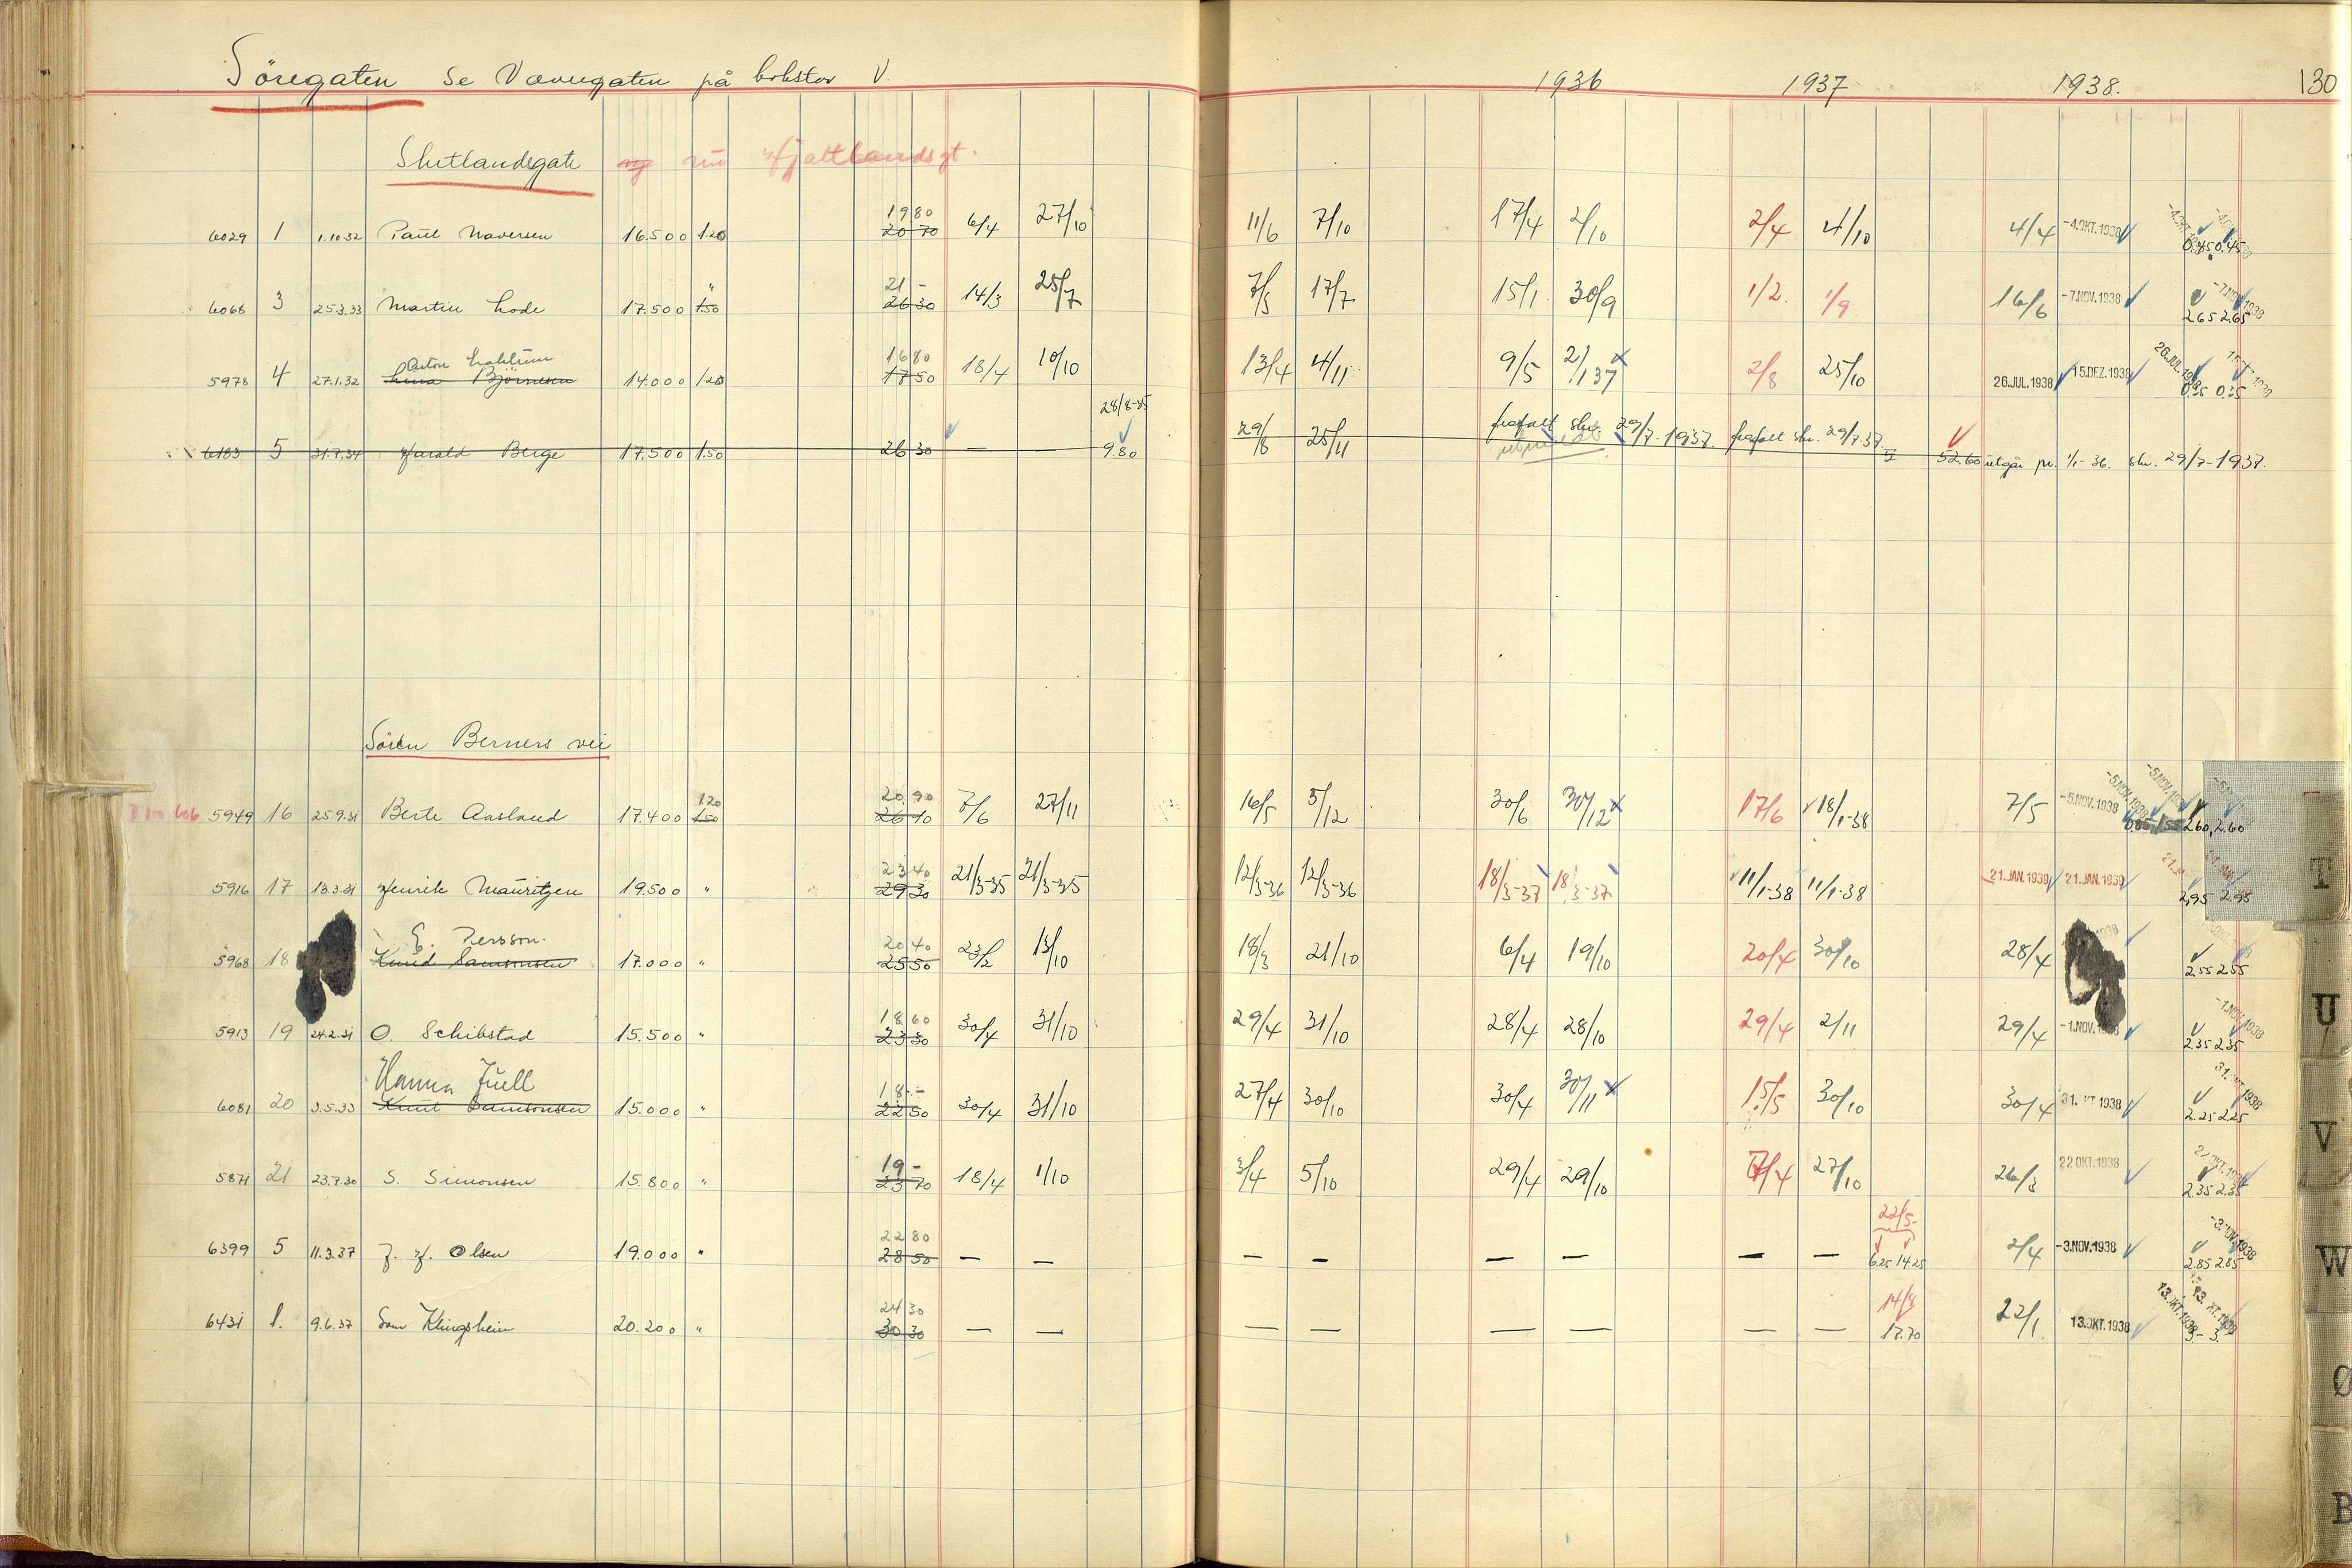 Söregaten se Vævergaten på bokstav V. 1936 1937 1938. 130
Shetlandsgate ny nu Hjaltlandsgt.
19 80
6029 1 1.10.32 Paul Naversen 16.500 1.20 20 70 6/4 27/10 11/6 7/10 17/4 2/10 2/4 4/10 4/4 -4.OKT.1938 0.45 0.45
21 - "
6068 3 25.3.33 Martin Lode 17.500 1.50 26 30 14/3 25/7 7/5 17/7 15/1 30/9 1/2. 1/9. 16/6 -7.NOV.1938 2.65 2.65
Anton 16 80
5978 4 27.1.32 Björnesen 14.000 1.20 17 50 18/4 10/10 13/4 4/11 9/5 2/1 37 2/8 25/10 26.JUL.1938 15.DEZ.1938 26.JUL.1938 0.35 0.35
28/8-35
6183 5 31.7.34 Harald Berge 17.500 1.50 26 30 — — 9.80 29/8 25/11 frafalt skr. 29/7-1937. frafalt skr. 29/7-37 52.60 utgår pr. 1/1-36. skr. 29/7-1937.
Sören Berners vei
1.20 20.90
5949 16 25.9.31 Berte Aasland 17.400 1.50 26 10 7/6 27/11 16/5 5/12 30/6 30/12 17/6 18/1-38 7/5 -5.NOV.1938 0.85 1.55 2.60, 2.60
23 40
5916 17 13.3.31 Henrik Mauritzen 19.500 " 29 30 21/3-35 21/3-35 12/3-36 12/3-36 18/3-37 18/3-37 11/1-38 11/1-38 21.JAN.1939 21.JAN.1939 2,95 2.95
E. Persson. 20 40
5968 18 Knud Samsonsen 17.000 " 25 50 23/2 13/10 18/3 21/10 6/4 19/10 20/4 30/10 28/4 2.55 2.55
18 60
5913 19 24.2.31 O. Schibstad 15.500 " 23 30 30/4 31/10 29/4 31/10 28/4 28/10 29/4 2/11 29/4 -1.NOV. -1.NOV.1938 2.35 2.35
Hanna Juell 18 --
6081 20 3.5.33 Knut Samsonsen 15.000 " 22 50 30/4 31/10 27/4 30/10 30/4 30/11 15/5 30/10 30/4 31. KT 1938 2.25 2.25
19 -
5871 21 23.7.30 S. Simonsen 15.800 " 23 70 18/4 1/10 3/4 5/10 29/4 29/10 7/4 27/10 26/3 22 OKT.1938 2.35 2.35
22 80 22/5-
6399 5 11.3.37 J. H. Olsen 19.000 " 28 50 — — — — — — — — 6.25 14.25 2/4 -3.NOV.1938 -3.NOV.1938 2.85 2.85
24 30 14/8
6431 1. 9.6.37 Sam Klingsheim 20.200 " 30 30 — — — — — — — — 17.70 22/1 13.OKT.1938 13.OKT.1938 3.- 3.
T
U
V
W
Ø
B